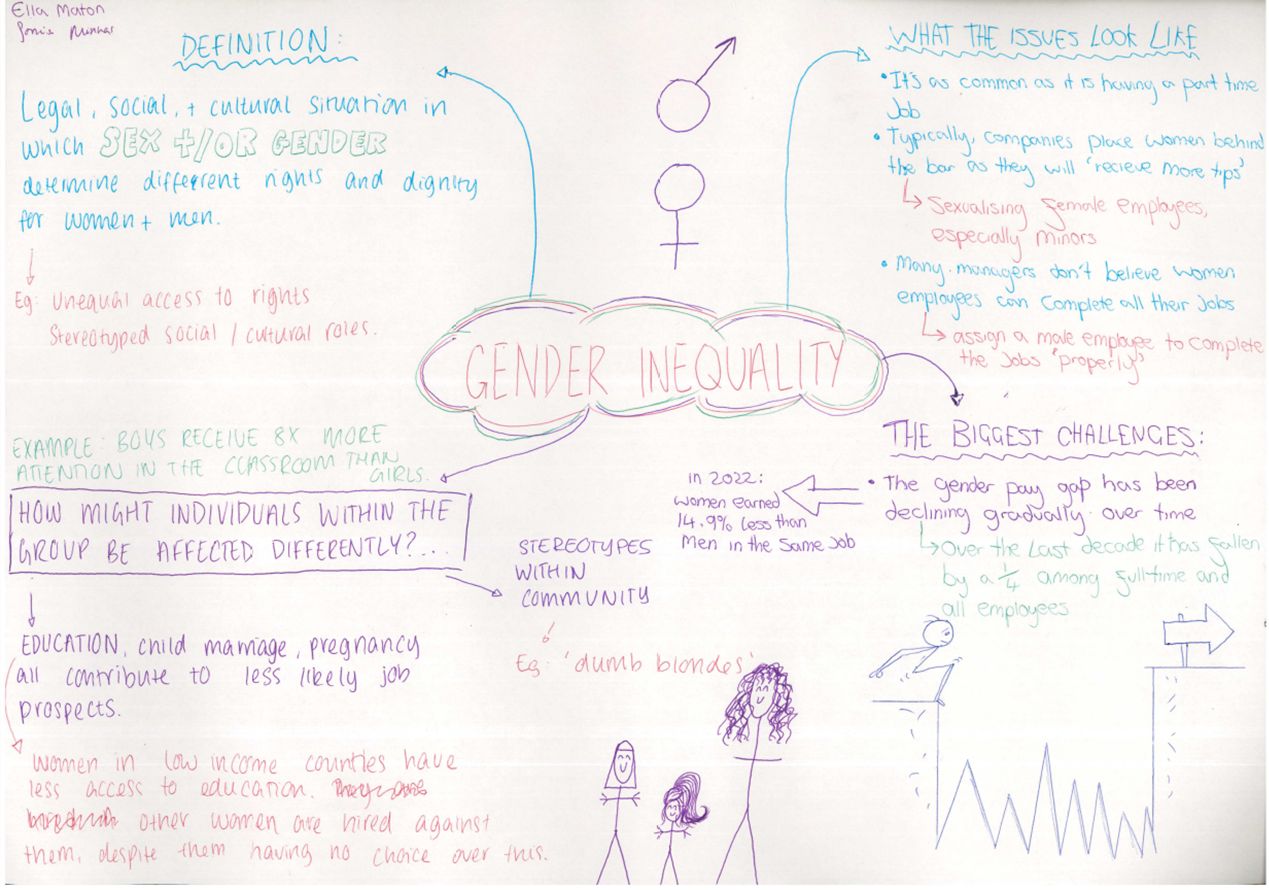 Ella Maton
DEFINITION:
Legal, social, + cultural situation in
which SEX +/OR GENDER
determine different rights and dignity
for women + men.
Eg: Unequal access to rights
Stereotyped social / cultural roles.
WHAT THE ISSUES LOOK LIKE
• It's as common as it is having a part time
Job
• Typically, companies place women behind
the bar as they will 'recieve more tips'
Sexualising female employees,
especially minors
• Many managers don't believe women
employees can complete all their jobs
assign a male employee to complete
the jobs 'properly'
GENDER INEQUALITY
EXAMPLE: BOYS RECEIVE 8X MORE
ATTENTION IN THE CLASSROOM THAN
GIRLS.
HOW MIGHT INDIVIDUALS WITHIN THE
GROUP BE AFFECTED DIFFERENTLY?...
EDUCATION, child marriage, pregnancy
all contribute to less likely job
prospects.
Women in low income counties have
less access to education.
other women are hired against
them, despite them having no choice over this.
STEREOTYPES
WITHIN
COMMUNITY
Eg: 'dumb blondes'
THE BIGGEST CHALLENGES:
• The gender pay gap has been
declining gradually over time
in 2022:
women earned
14.9% less than
Men in the same job
Over the last decade it has fallen
by a 1/4 among full-time and
all employees